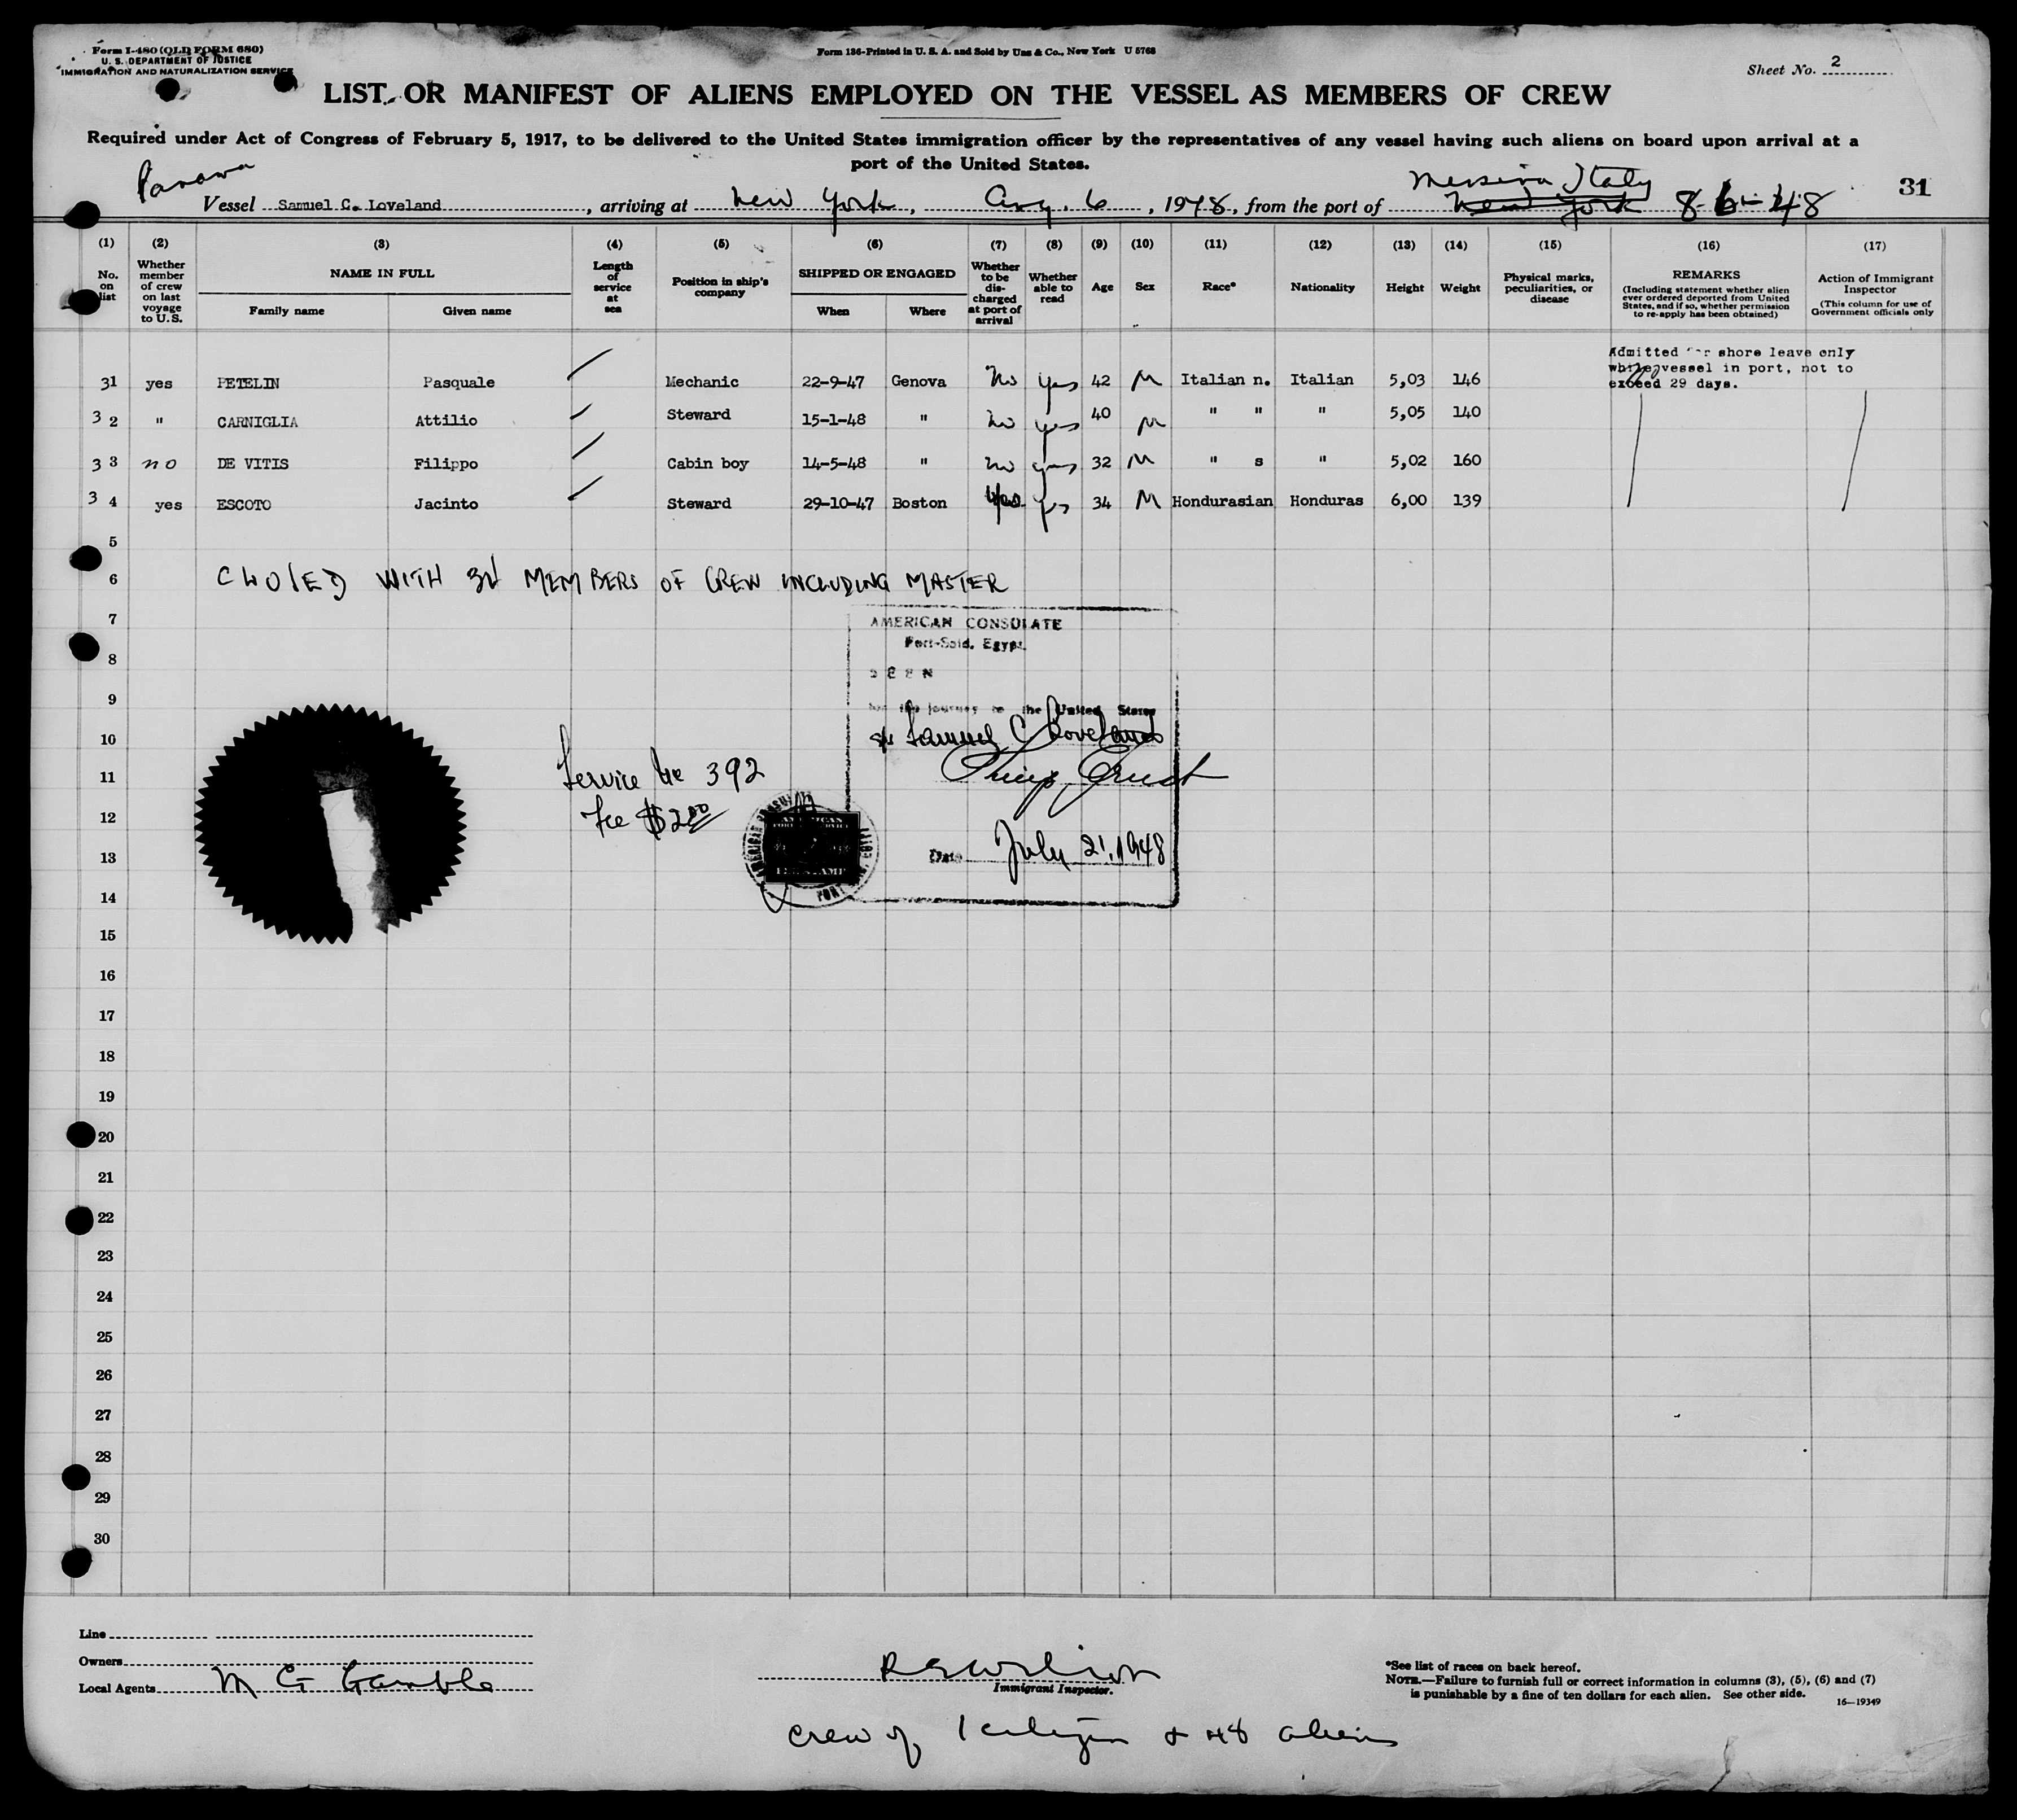 Form I-480 (OLD FORM 680)
U. S. DEPARTMENT OF JUSTICE
IMMIGRATION AND NATURALIZATION SERVICE
Form 136-Printed in U. S. A. and Sold by Unz & Co., New York U 5768
Sheet No. 2
LIST, OR MANIFEST OF ALIENS EMPLOYED ON THE VESSEL AS MEMBERS OF CREW
Required under Act of Congress of February 5, 1917, to be delivered to the United States immigration officer by the representatives of any vessel having such aliens on board upon arrival at a
port of the United States.
Panama
Messina Italy
Vessel Samuel C. Loveland, arriving at New York, Aug. 6, 1948, from the port of New York 8-6-48
31
(1) (2) (3) (4) (5) (6) (7) (8) (9) (10) (11) (12) (13) (14) (15) (16) (17)
No. on list
Whether member of crew on last voyage to U. S.
NAME IN FULL
Family name
Given name
Length of service at sea
Position in ship's company
SHIPPED OR ENGAGED
When
Where
Whether to be discharged at port of arrival
Whether able to read
Age
Sex
Race*
Nationality
Height
Weight
Physical marks, peculiarities, or disease
REMARKS
(Including statement whether alien ever ordered deported from United States, and if so, whether permission to re-apply has been obtained)
Action of Immigrant Inspector
(This column for use of Government officials only
Admitted for shore leave only
while vessel in port, not to
exceed 29 days.
31 yes PETELIN Pasquale Mechanic 22-9-47 Genova No yes 42 M Italian n. Italian 5,03 146
32 " CARNIGLIA Attilio Steward 15-1-48 " No yes 40 M " " " 5,05 140
33 no DE VITIS Filippo Cabin boy 14-5-48 " No yes 32 M " s " 5,02 160
34 yes ESCOTO Jacinto Steward 29-10-47 Boston Yes yes 34 M Hondurasian Honduras 6,00 139
5
6 CLOSED WITH 34 MEMBERS OF CREW INCLUDING MASTER
7
8
9
10
11
12
13
14
15
16
17
18
19
20
21
22
23
24
25
26
27
28
29
30
AMERICAN CONSULATE
Port-Said, Egypt.
SEEN
for the journey to the United States
Samuel C Loveland
Date July 21, 1948
Service No 392
Fee $2.00
Line
Owners
Local Agents M G Gamble
Immigrant Inspector.
*See list of races on back hereof.
NOTE.—Failure to furnish full or correct information in columns (3), (5), (6) and (7)
is punishable by a fine of ten dollars for each alien. See other side.
16—19349
crew of 1 citizen & 48 aliens